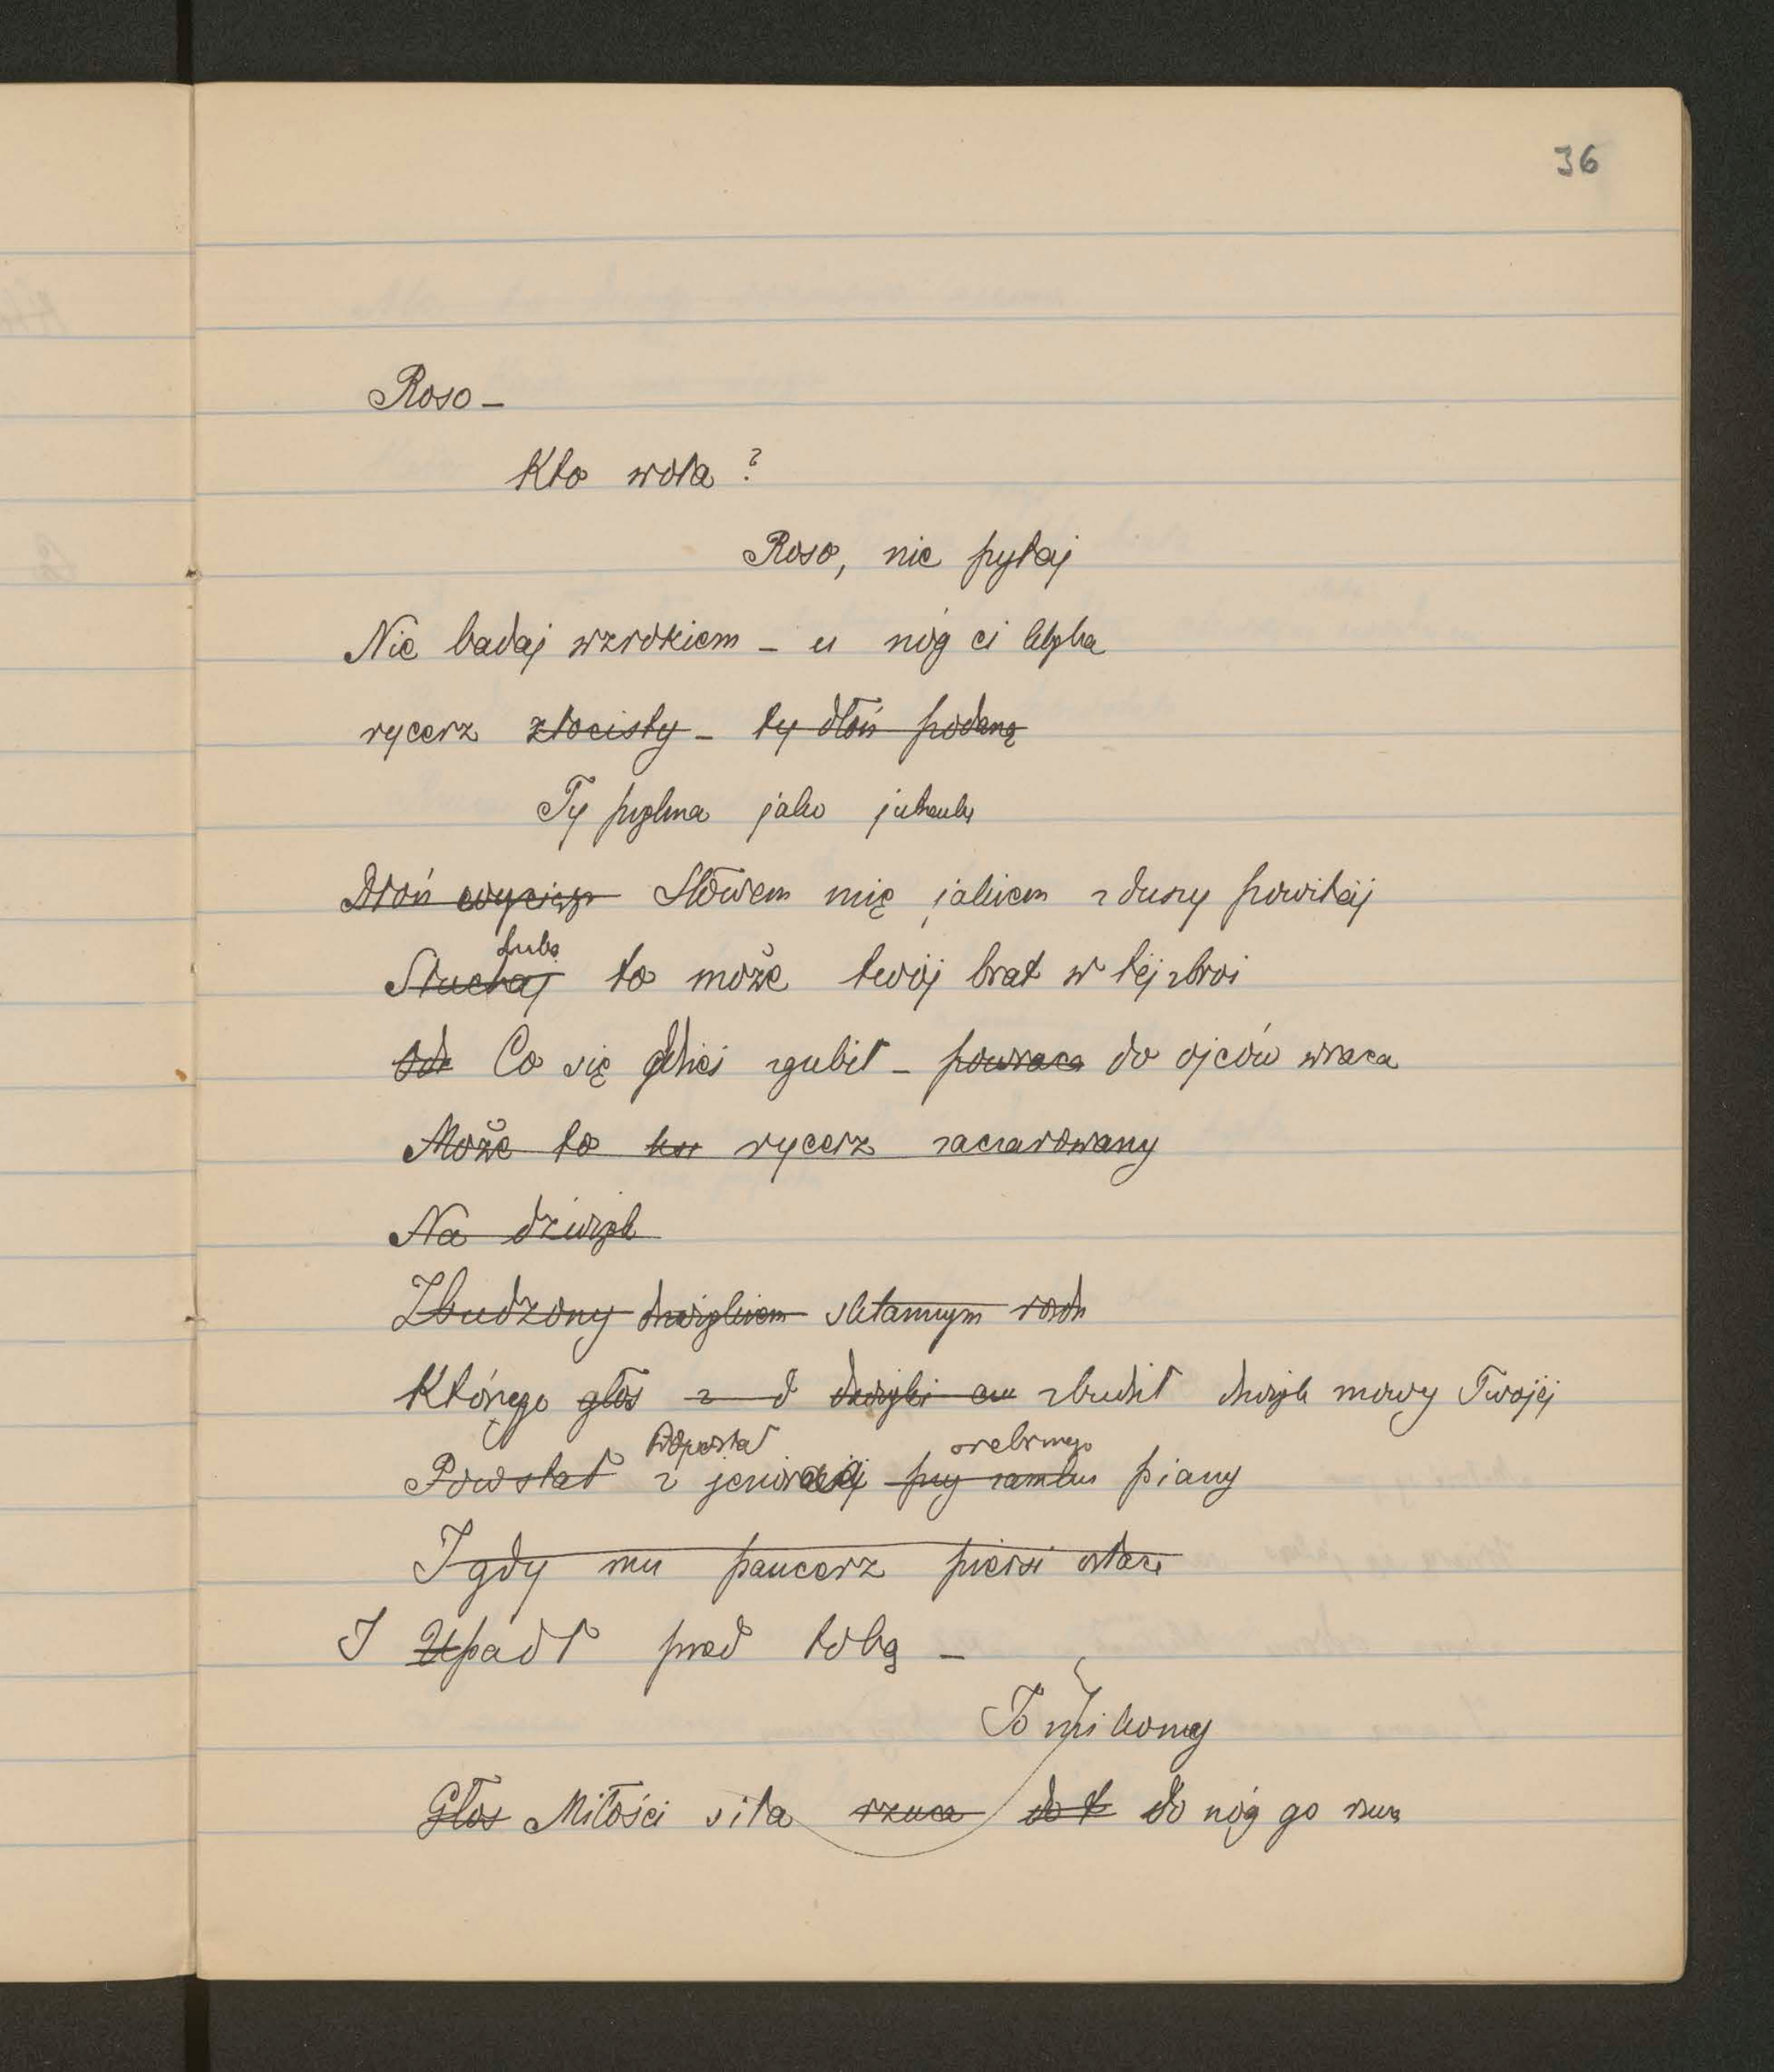 36
Roso –
Kto woła?
Roso, nie pytaj
Nie badaj wzrokiem – u nóg ci klęka
rycerz złocisty – ty dłoń podaną
Ty piękna jako jutrzenka
Dłoń wyciąg Słowem mię jakiem z duszy powitaj
luba
Słuchaj to może twój brat w tej zbroi
Co się gdzieś zgubił – powraca do ojców wraca
Może to rycerz zaczarowany
Na dźwięk
Zbudzony dźwiękiem
Którego głos z d dźwięki zbudził dźwięk mowy Twojéj
Powstał z piany
srebrnego
I gdy mu pancerz piersi
I Upadł przed tobą –
To
Głos Miłości siła rzuca do t do nóg go rzuca